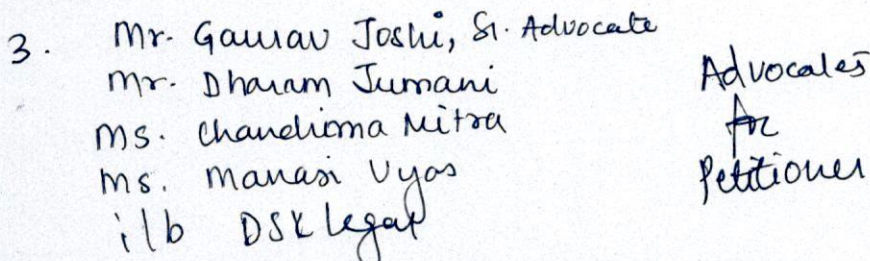 3. Mr. Gaurav Joshi, Sr. Advocate
Mr. Dharam Jumani
Ms. Chandrima Mitra
Ms. Manasi Vyas
i/b DSK Legal
Advocates
for
Petitioner